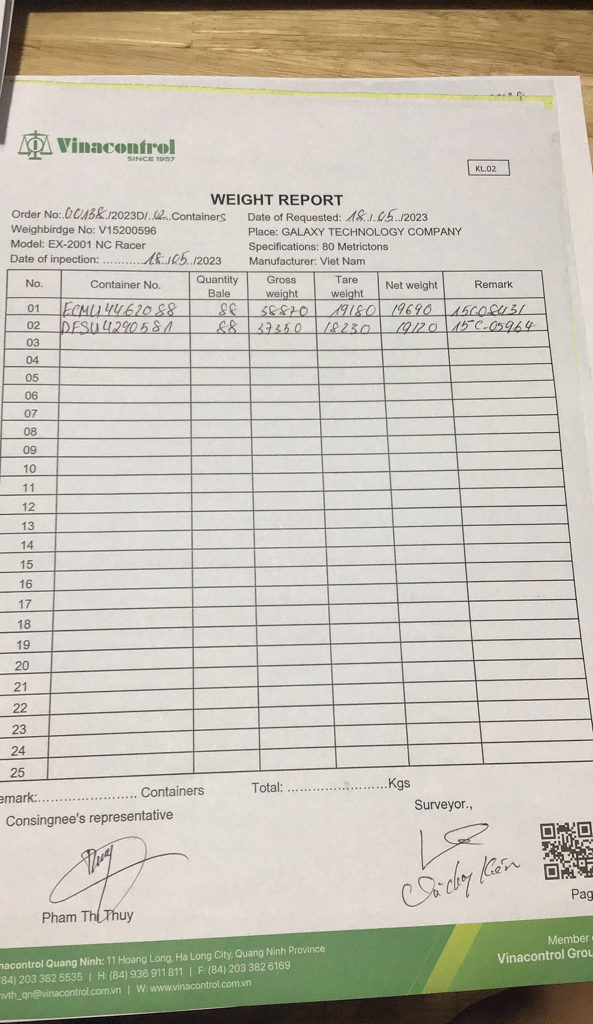 Vinacontrol
SINCE 1957
KL.02
WEIGHT REPORT
Order No:.00138./2023D/..02..Containers Date of Requested: .18../.05../2023
Weighbirdge No: V15200596 Place: GALAXY TECHNOLOGY COMPANY
Model: EX-2001 NC Racer Specifications: 80 Metrictons
Date of inpection: ............18./05../2023 Manufacturer: Viet Nam
No. Container No. Quantity Bale Gross weight Tare weight Net weight Remark
01 ECMU4462088 88 38870 19180 19690 15C08431
02 DFSU4290581 88 37350 18230 19120 15C-05964
03
04
05
06
07
08
09
10
11
12
13
14
15
16
17
18
19
20
21
22
23
24
25
emark:........................ Containers Total: ........................Kgs
Consingnee's representative Surveyor.,
Thuy
Pham Thi Thuy
Pag
nacontrol Quang Ninh: 11 Hoang Long, Ha Long City, Quang Ninh Province
84) 203 382 5535 | H: (84) 936 911 811 | F: (84) 203 382 6169
nvth_qn@vinacontrol.com.vn | W: www.vinacontrol.com.vn
Member
Vinacontrol Grou